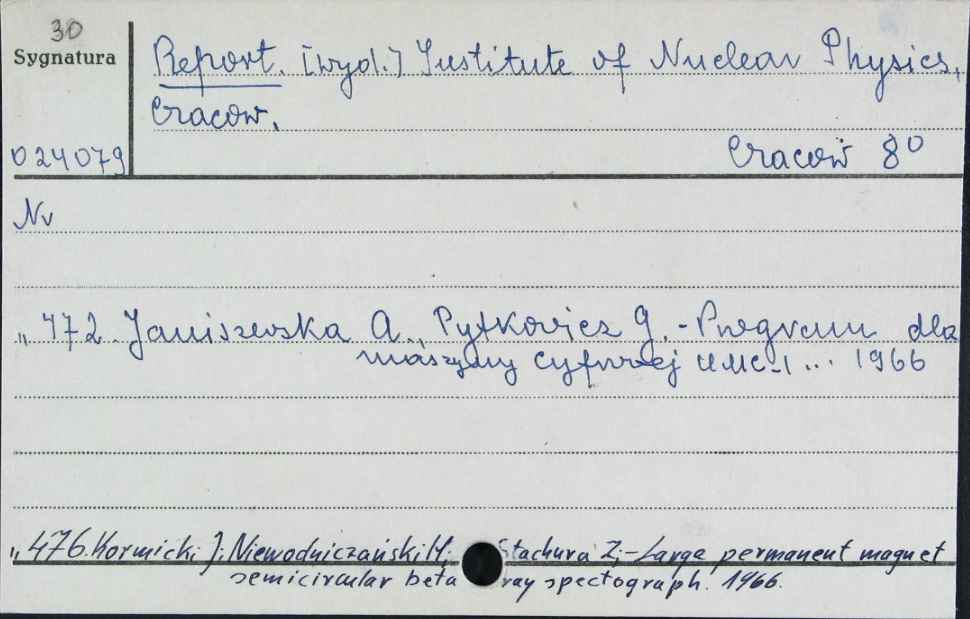 30
Sygnatura
Report. [wyd.] Institute of Nuclear Physics,
Cracow.
024079
Cracow 8°
Nr
„ 472. Janiszewska A., Pytkowicz G. - Program dla
maszyny cyfrowej UMC-1 ... 1966
„ 476. Kormicki J., Niewodniczański H., Stachura Z., - Large permanent magnet
semicircular beta ray spectograph. 1966.